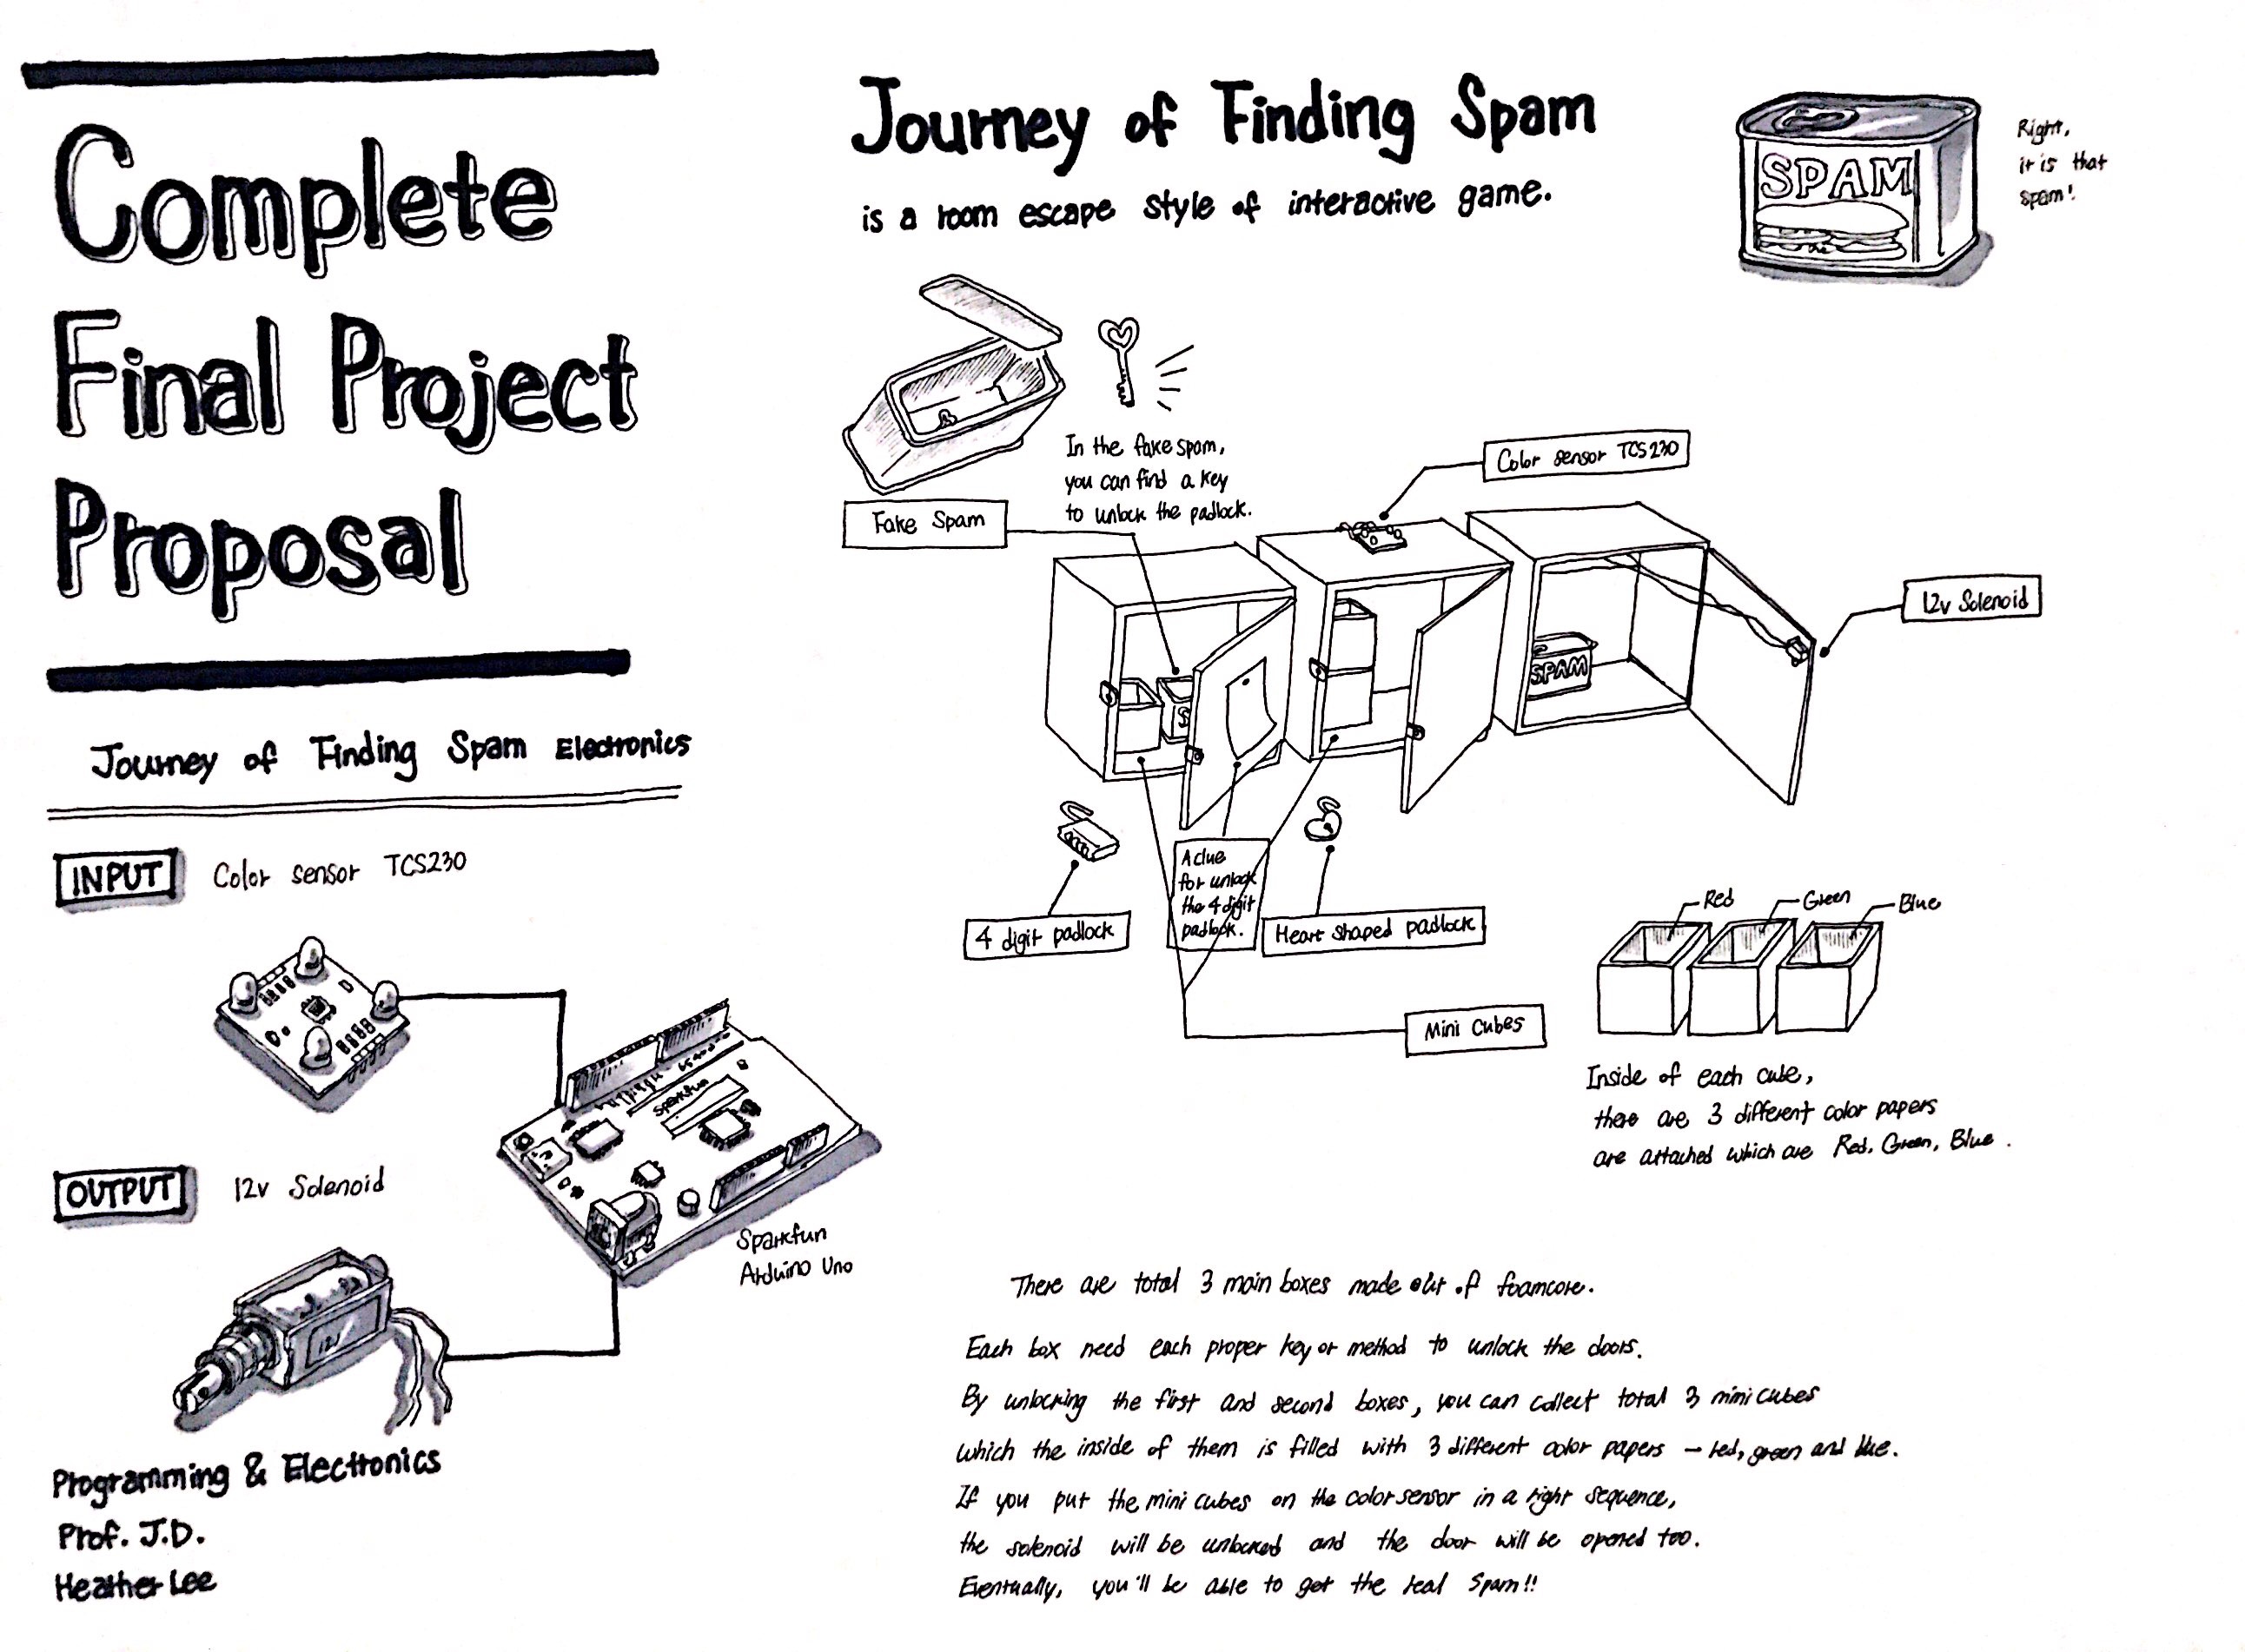 Complete
Final Project
Proposal
Journey of Finding Spam Electronics
INPUT
Color sensor TCS230
Sparkfun
OUTPUT
12v Solenoid
12V
Sparkfun
Arduino Uno
Programming & Electronics
Prof. J.D.
Heather Lee
Journey of Finding Spam
is a room escape style of interactive game.
SPAM
Right,
it is that
spam!
In the fake spam,
you can find a key
to unlock the padlock.
Fake Spam
Color sensor TCS230
12v Solenoid
S
SPAM
4 digit padlock
A clue
for unlock
the 4 digit
padlock.
Heart shaped padlock
Mini cubes
Red
Green
Blue
Inside of each cube,
there are 3 different color papers
are attached which are Red, Green, Blue.
There are total 3 main boxes made out of foamcore.
Each box need each proper key or method to unlock the doors.
By unlocking the first and second boxes, you can collect total 3 mini cubes
which the inside of them is filled with 3 different color papers – red, green and blue.
If you put the mini cubes on the color sensor in a right sequence,
the solenoid will be unlocked and the door will be opened too.
Eventually, you'll be able to get the real Spam!!